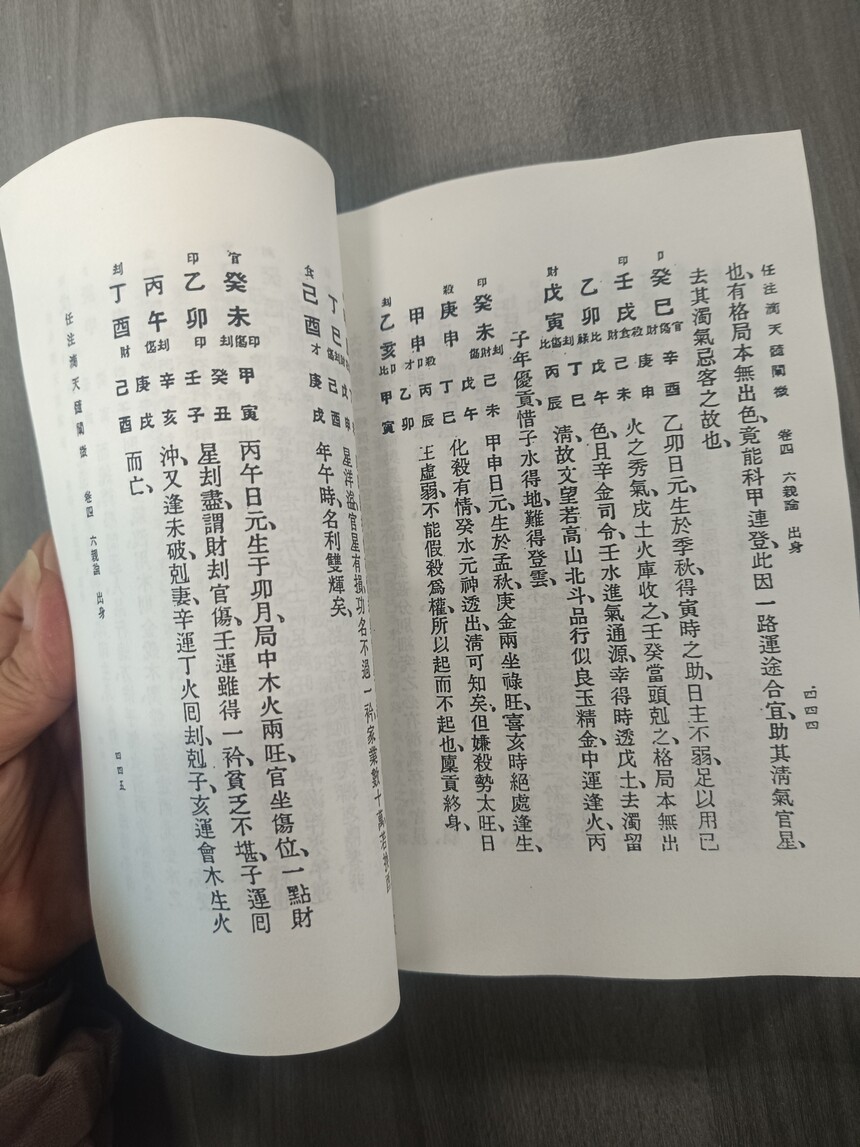 任注滴天髓闡微 卷四 六親論 出身 四四四
也、有格局本無出色、竟能科甲連登、此因一路運途合宜、助其淸氣官星、
去其濁氣忌客之故也、
卩癸巳官傷財 辛酉
庚申
印壬戌殺食財 己未
戊午
乙卯比祿 丁巳
財戊寅刦傷比 丙辰
乙卯日元、生於季秋、得寅時之助、日主不弱、足以用巳
火之秀氣、戌土火庫收之、壬癸當頭剋之、格局本無出
色、且辛金司令、壬水進氣通源、幸得時透戊土、去濁留
淸、故文望若高山北斗、品行似良玉精金、中運逢火、丙
子年優貢、惜子水得地、難得登雲、
印癸未刦財傷 己未
戊午
殺庚申 丁巳
甲申殺卩才 丙辰
乙卯
刦乙亥卩比 甲寅
甲申日元、生於孟秋、庚金兩坐祿旺、喜亥時絕處逢生、
化殺有情、癸水元神透出、淸可知矣、但嫌殺勢太旺、日
主虛弱、不能假殺爲權、所以起而不起也、廩貢終身、
丁巳
食己酉才
己酉
庚戌
星洋溢、官星有損、功名不過一衿、家業數十萬、若
年午時、名利雙輝矣、
官癸未印傷刦 甲寅
癸丑
印乙卯印 壬子
辛亥
丙午刦傷 庚戌
刦丁酉財 己酉
丙午日元、生于卯月、局中木火兩旺、官坐傷位、一點財
星刦盡、謂財刦官傷、壬運雖得一衿、貧乏不堪、子運囘
沖、又逢未破、剋妻、辛運丁火囘刦、剋子、亥運會木生火
而亡、
任注滴天髓闡微 卷四 六親論 出身 四四五